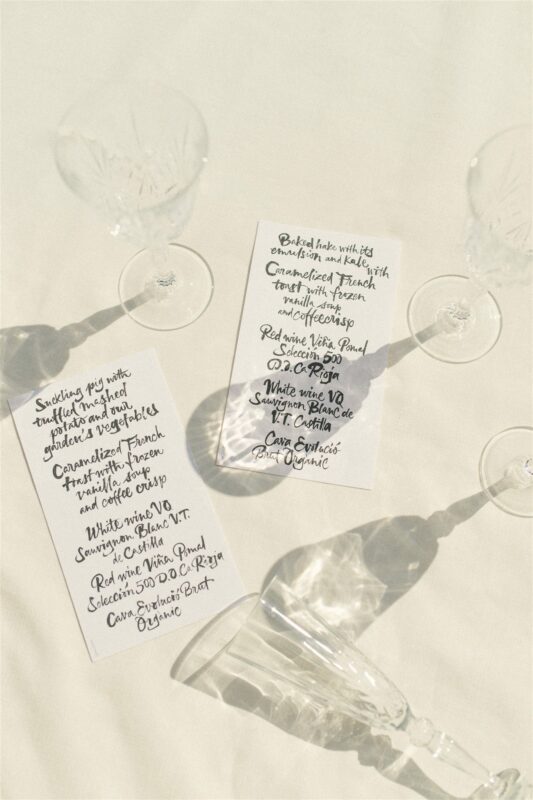 Suckling pig with
truffled mashed
potato and our
garden's vegetables
Caramelized French
toast with frozen
vanilla soup
and coffee crisp
White wine VQ
Sauvignon Blanc V.T.
de Castilla
Red wine Viña Pomal
Selección 500 D.O.Ca Rioja
Cava Evolució Brut
Organic
Baked hake with its
emulsion and kale with
Caramelized French
toast with frozen
vanilla soup
and coffee crisp
Red wine Viña Pomal
Selección 500
D.O.Ca Rioja
White wine VQ
Sauvignon Blanc de
V.T. Castilla
Cava Evolució
Brut Organic